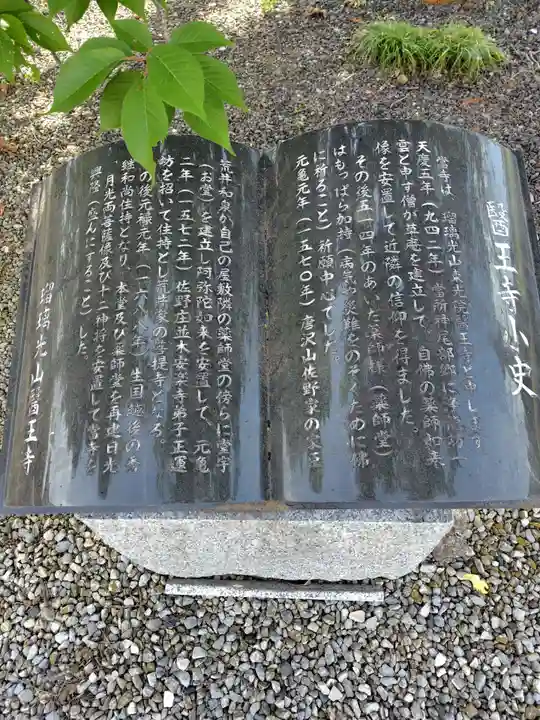 醫王寺小史
当寺は、瑠璃光山東光院醫王寺と申します
天慶五年(九四二年)当所神尾部郷に
雲と申す僧が草庵を建立して、自佛の薬師如来
像を安置して近隣の信仰を得ました。
その後五一四年のあいだ薬師様(薬師堂)
はもっぱら加持(病気や災難をのぞくために佛
に祈ること)祈願中心でした。
元亀元年(一五七〇年)唐沢山佐野家の家臣
荒井和泉が自己の屋敷隣の薬師堂の傍らに堂宇
(お堂)を建立し阿弥陀如来を安置して、元亀
二年(一五七二年)佐野庄並木安楽寺弟子正運
坊を招いて住持とし荒井家の菩提寺となる。
その後元禄元年(一六八八年)生国越後の秀
雄和尚住持となり、本堂及び薬師堂を再建日光
、月光両菩薩像及び十二神将を安置して当寺を
興隆(盛んにすること)した。
瑠璃光山醫王寺